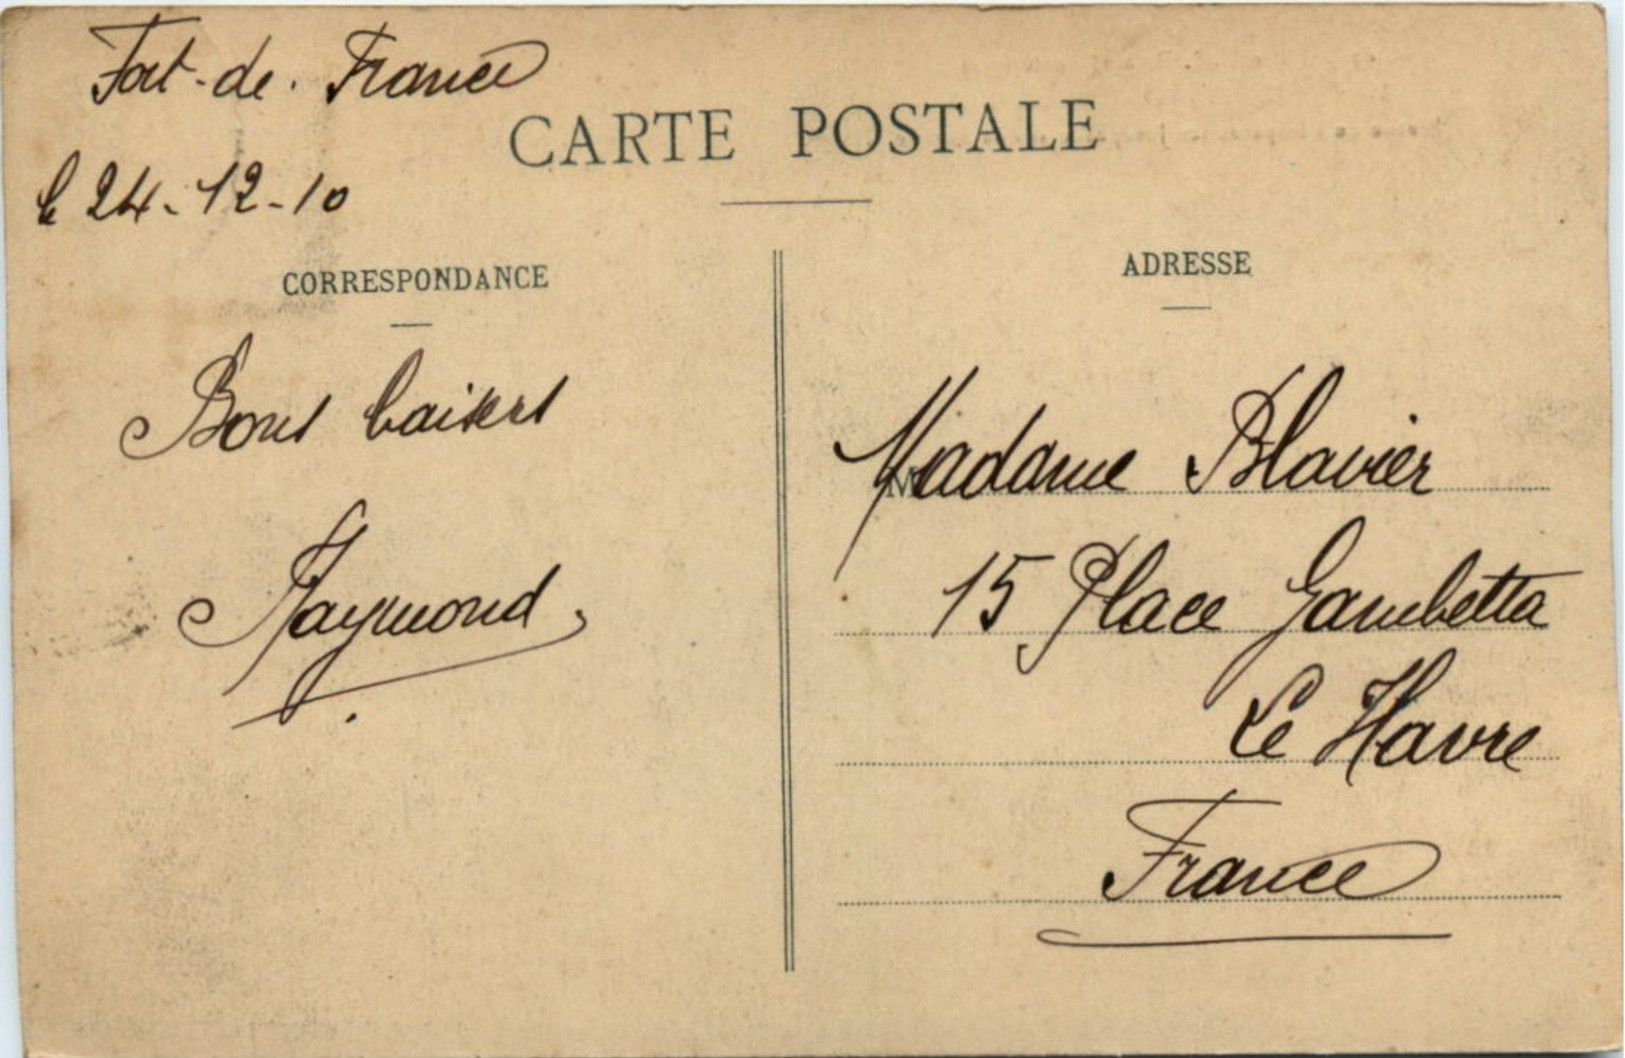 Fort-de-France
CARTE POSTALE
le 24-12-10
CORRESPONDANCE
ADRESSE
Bons baisers
Raymond
M
Madame Blavier
15 Place Gambetta
Le Havre
France